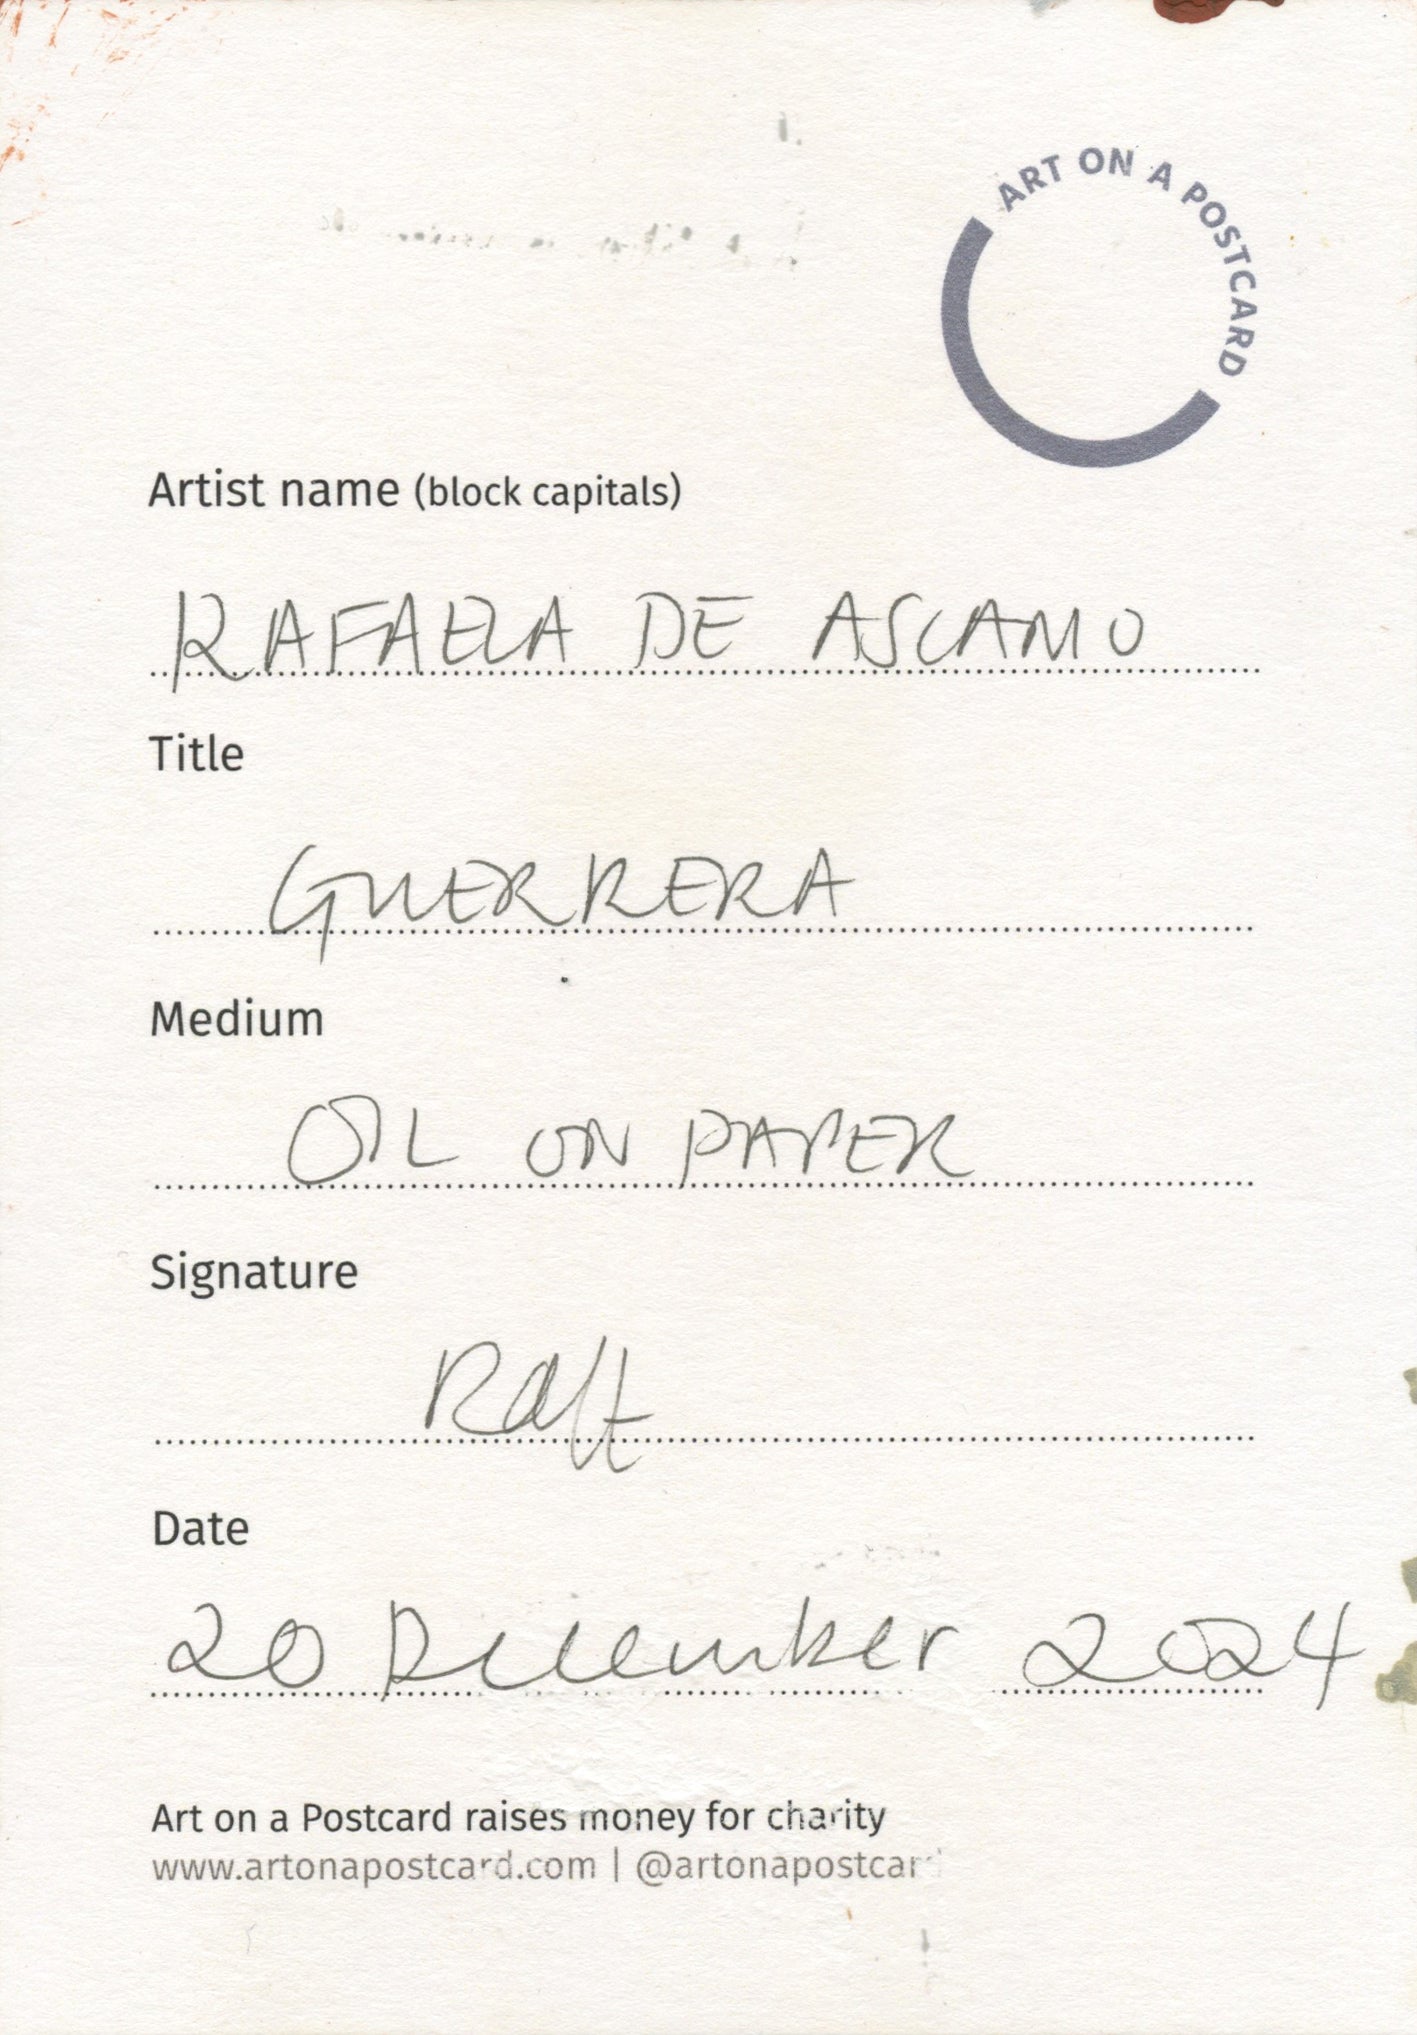 ART ON A POSTCARD
Artist name (block capitals)
RAFAELA DE ASCANIO
Title
GUERRERA
Medium
OIL ON PAPER
Signature
Date
20 December 2024
Art on a Postcard raises money for charity
www.artonapostcard.com | @artonapostcard